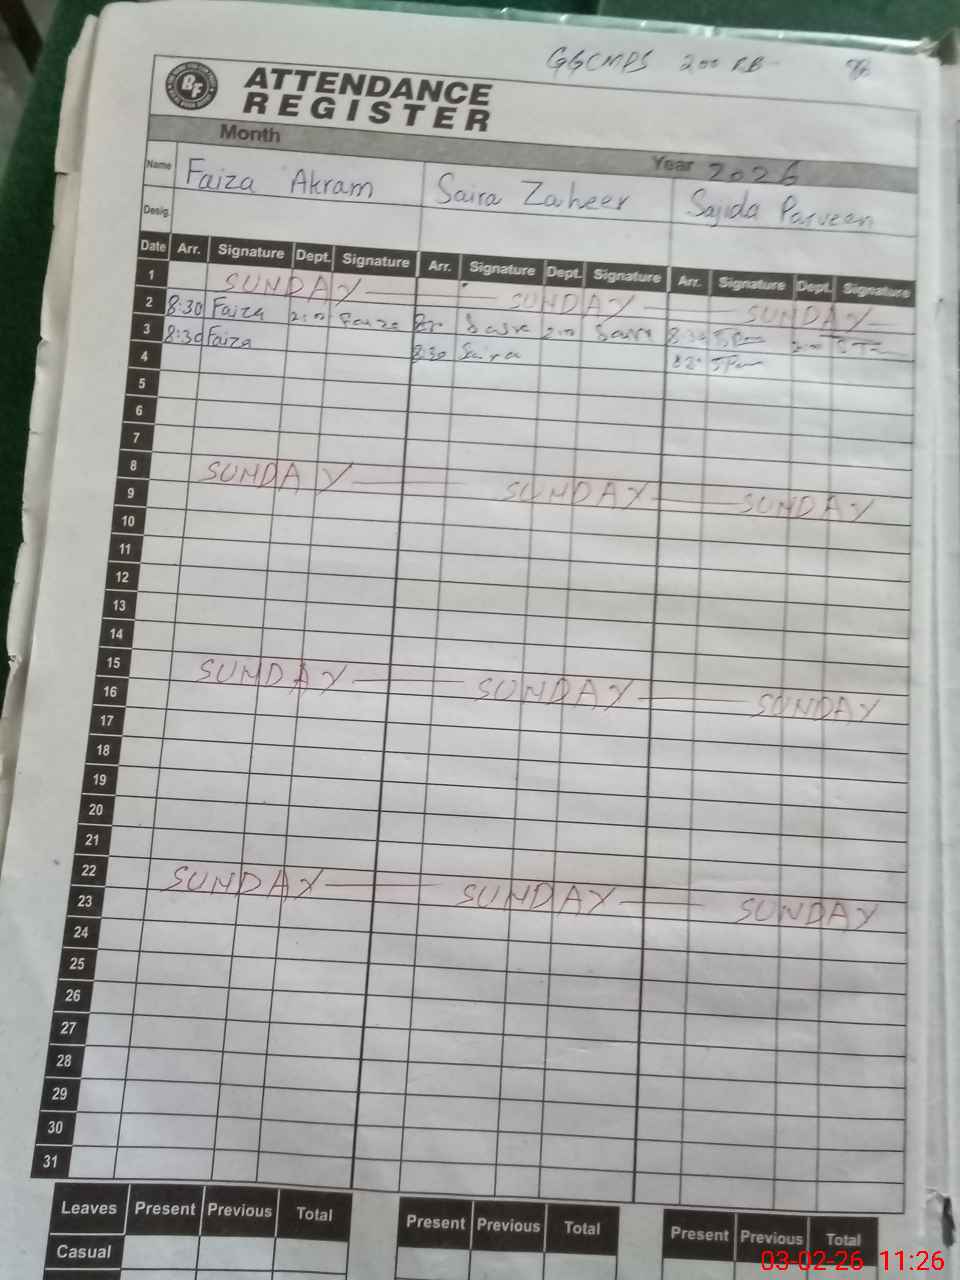 GGCMPS 200 RB
BF
ATTENDANCE
REGISTER
Month
Year 2026
Name Faiza Akram Saira Zaheer Sajida Parveen
Desig.
Date Arr. Signature Dept. Signature Arr. Signature Dept. Signature Arr. Signature Dept. Signature
1 SUNDAY SUNDAY SUNDAY
2 8:30 Faiza 2:00 Faiza 2:00 8:30
3 8:30 Faiza 8:30 Saira
4
5
6
7
8 SUNDAY SUNDAY SUNDAY
9
10
11
12
13
14
15 SUNDAY SUNDAY SUNDAY
16
17
18
19
20
21
22 SUNDAY SUNDAY SUNDAY
23
24
25
26
27
28
29
30
31
Leaves Present Previous Total Present Previous Total Present Previous Total
Casual
03-02-26 11:26